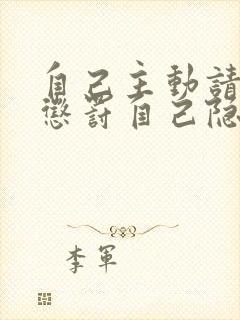 自己主動請
懲罰自己隐
李軍